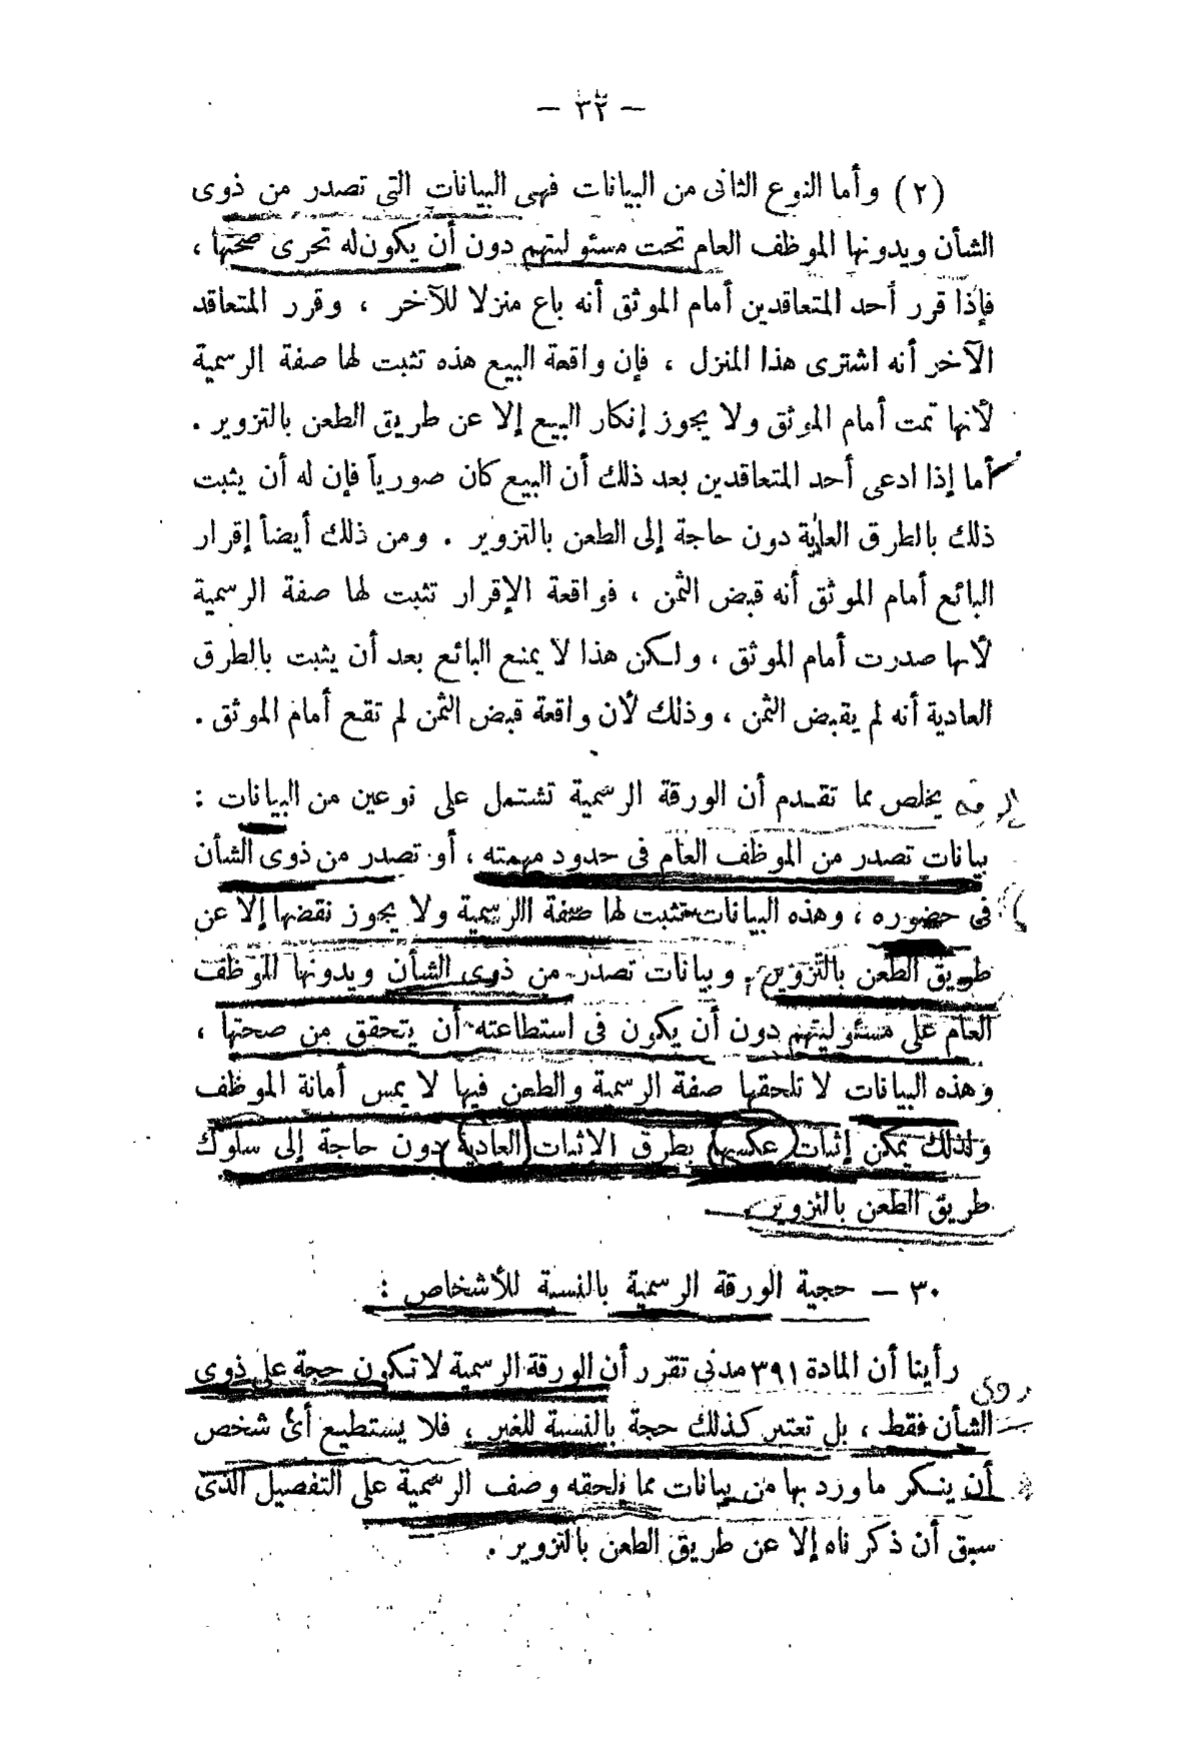 — ٣٢ —
(٢) وأما النوع الثانى من البيانات فهى البيانات التى تصدر من ذوى
الشأن ويدونها الموظف العام تحت مسئوليتهم دون أن يكون له تحرى صحتها ،
فإذا قرر أحد المتعاقدين أمام الموثق أنه باع منزلا للآخر ، وقرر المتعاقد
الآخر أنه اشترى هذا المنزل ، فإن واقعة البيع هذه تثبت لها صفة الرسمية
لأنها تمت أمام الموثق ولا يجوز إنكار البيع إلا عن طريق الطعن بالتزوير .
أما إذا ادعى أحد المتعاقدين بعد ذلك أن البيع كان صورياً فإن له أن يثبت
ذلك بالطرق العادية دون حاجة إلى الطعن بالتزوير . ومن ذلك أيضاً إقرار
البائع أمام الموثق أنه قبض الثمن ، فواقعة الإقرار تثبت لها صفة الرسمية
لأنها صدرت أمام الموثق ، ولكن هذا لا يمنع البائع بعد أن يثبت بالطرق
العادية أنه لم يقبض الثمن ، وذلك لأن واقعة قبض الثمن لم تقع أمام الموثق .
يخلص مما تقدم أن الورقة الرسمية تشتمل على نوعين من البيانات :
بيانات تصدر من الموظف العام فى حدود مهمته ، أو تصدر من ذوى الشأن
فى حضوره ، وهذه البيانات تثبت لها صفة الرسمية ولا يجوز نقضها إلا عن
طريق الطعن بالتزوير ، وبيانات تصدر من ذوى الشأن ويدونها الموظف
العام على مسئوليتهم دون أن يكون فى استطاعته أن يتحقق من صحتها ،
وهذه البيانات لا تلحقها صفة الرسمية والطعن فيها لا يمس أمانة الموظف
ولذلك يمكن إثبات (عكسها) بطرق الإثبات (العادية) دون حاجة إلى سلوك
طريق الطعن بالتزوير .
٣٠ — حجية الورقة الرسمية بالنسبة للأشخاص :
رأينا أن المادة ٣٩١ مدنى تقرر أن الورقة الرسمية لا تكون حجة على ذوى
الشأن فقط ، بل تعتبر كذلك حجة بالنسبة للغير ، فلا يستطيع أى شخص
أن ينكر ما ورد بها من بيانات مما تلحقه وصف الرسمية على التفصيل الذى
سبق أن ذكرناه إلا عن طريق الطعن بالتزوير .